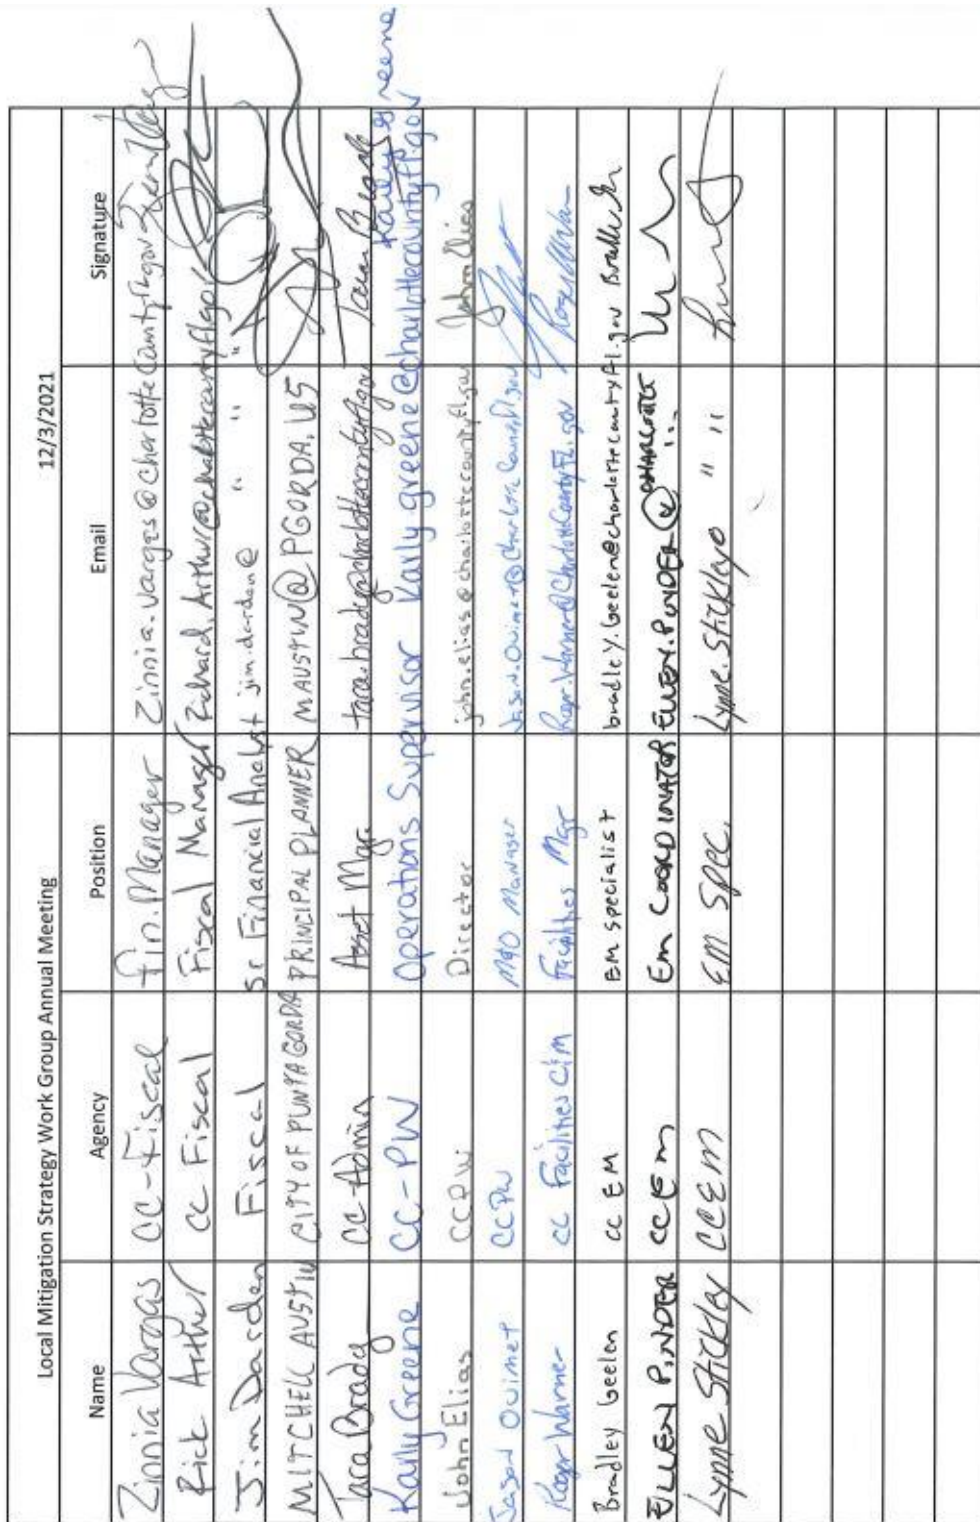 Local Mitigation Strategy Work Group Annual Meeting 12/3/2021
Name Agency Position Email Signature
Zinnia Vargas CC-Fiscal Fin. Manager Zinnia.Vargas@CharlotteCountyfl.gov
Rick Arthur CC Fiscal Fiscal Manager Richard.Arthur@charlottecountyfl.gov
Jim Dasden Fiscal Sr Financial Analyst jim.dasden@ " "
MITCHELL AUSTIN CITY OF PUNTA GORDA PRINCIPAL PLANNER MAUSTIN@PGORDA.US
Tara Brady CC-Admin Asset Mgr. tara.brady@charlottecountyfl.gov Tara Brady
Karly Greene CC-PW Operations Supervisor Karly.greene@charlottecountyfl.gov Karly greene
John Elias CCPW Director john.elias@charlottecountyfl.gov John Elias
Jason Ouimet CCPW M&O Manager Jason.Ouimet@CharlotteCountyFl.gov
Roger Warner CC Facilities CIM Facilities Mgr Roger.Warner@CharlotteCountyFL.gov
Bradley Geelen CC EM EM specialist bradley.Geelen@charlottecountyfl.gov
ELLEN PINDER CCEM Em COORDINATOR ELLEN.PINDER@CHARLOTTE " "
Lynne Stickley CCEM EM Spec. Lynne.Stickley@ " "